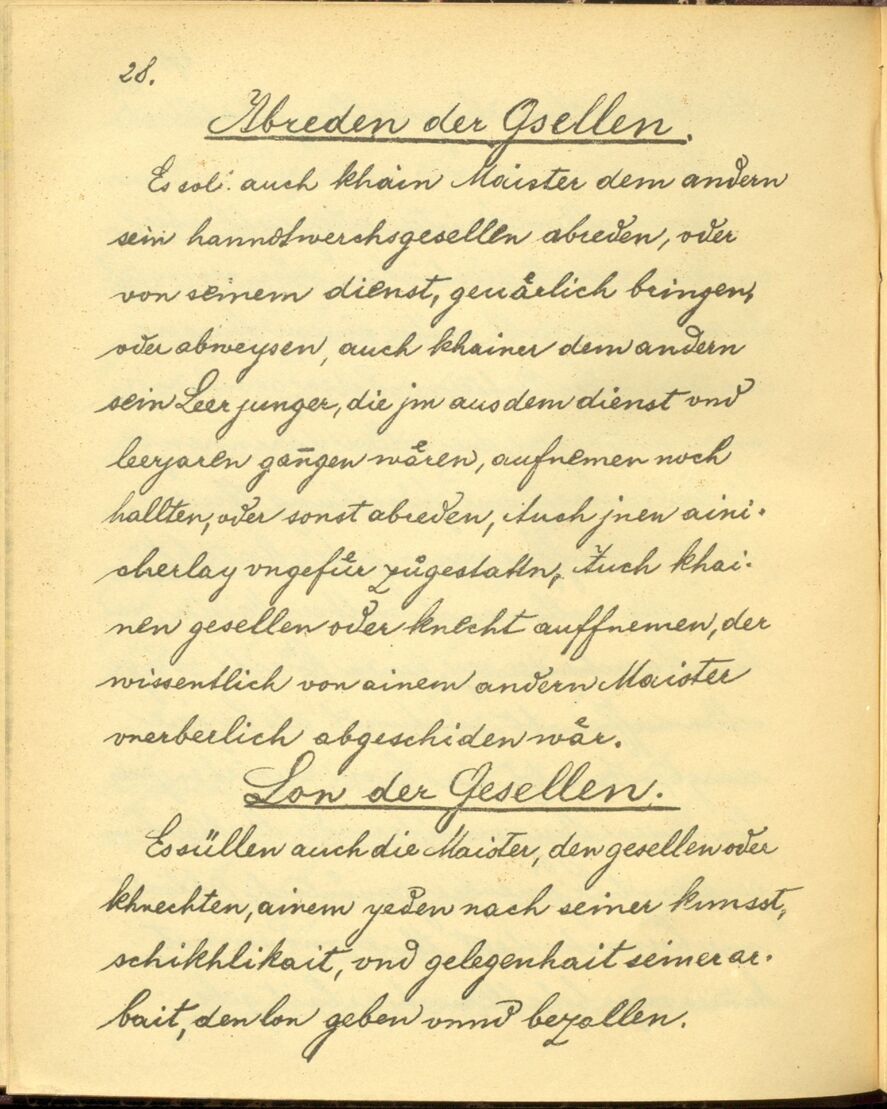 28.
Abreden der Gsellen.
Es sol' auch khain Maister dem andern
sein hanndtwerchsgesellen abreden, oder
von seinem dienst, geuårlich bringen,
oder abweysen, auch khainer dem andern
sein Leerjunger, die jm aus dem dienst vnd
leerjaren gan̄gen wåren, aufnemen noch
hallten, oder sonst abreden, Auch jnen aini-
cherlay vngefůr zůgestattn, Auch khai-
nen gesellen oder knecht auffnemen, der
wissentlich von ainem andern Maister
vnerberlich abgeschiden wår.
Lon der Gesellen.
Es süllen auch die Maister, den gesellen oder
khnechten, ainem yeden nach seiner kunsst,
schikhlikait, vnd gelegenhait seiner ar-
bait, den lon geben vnnd bezallen.